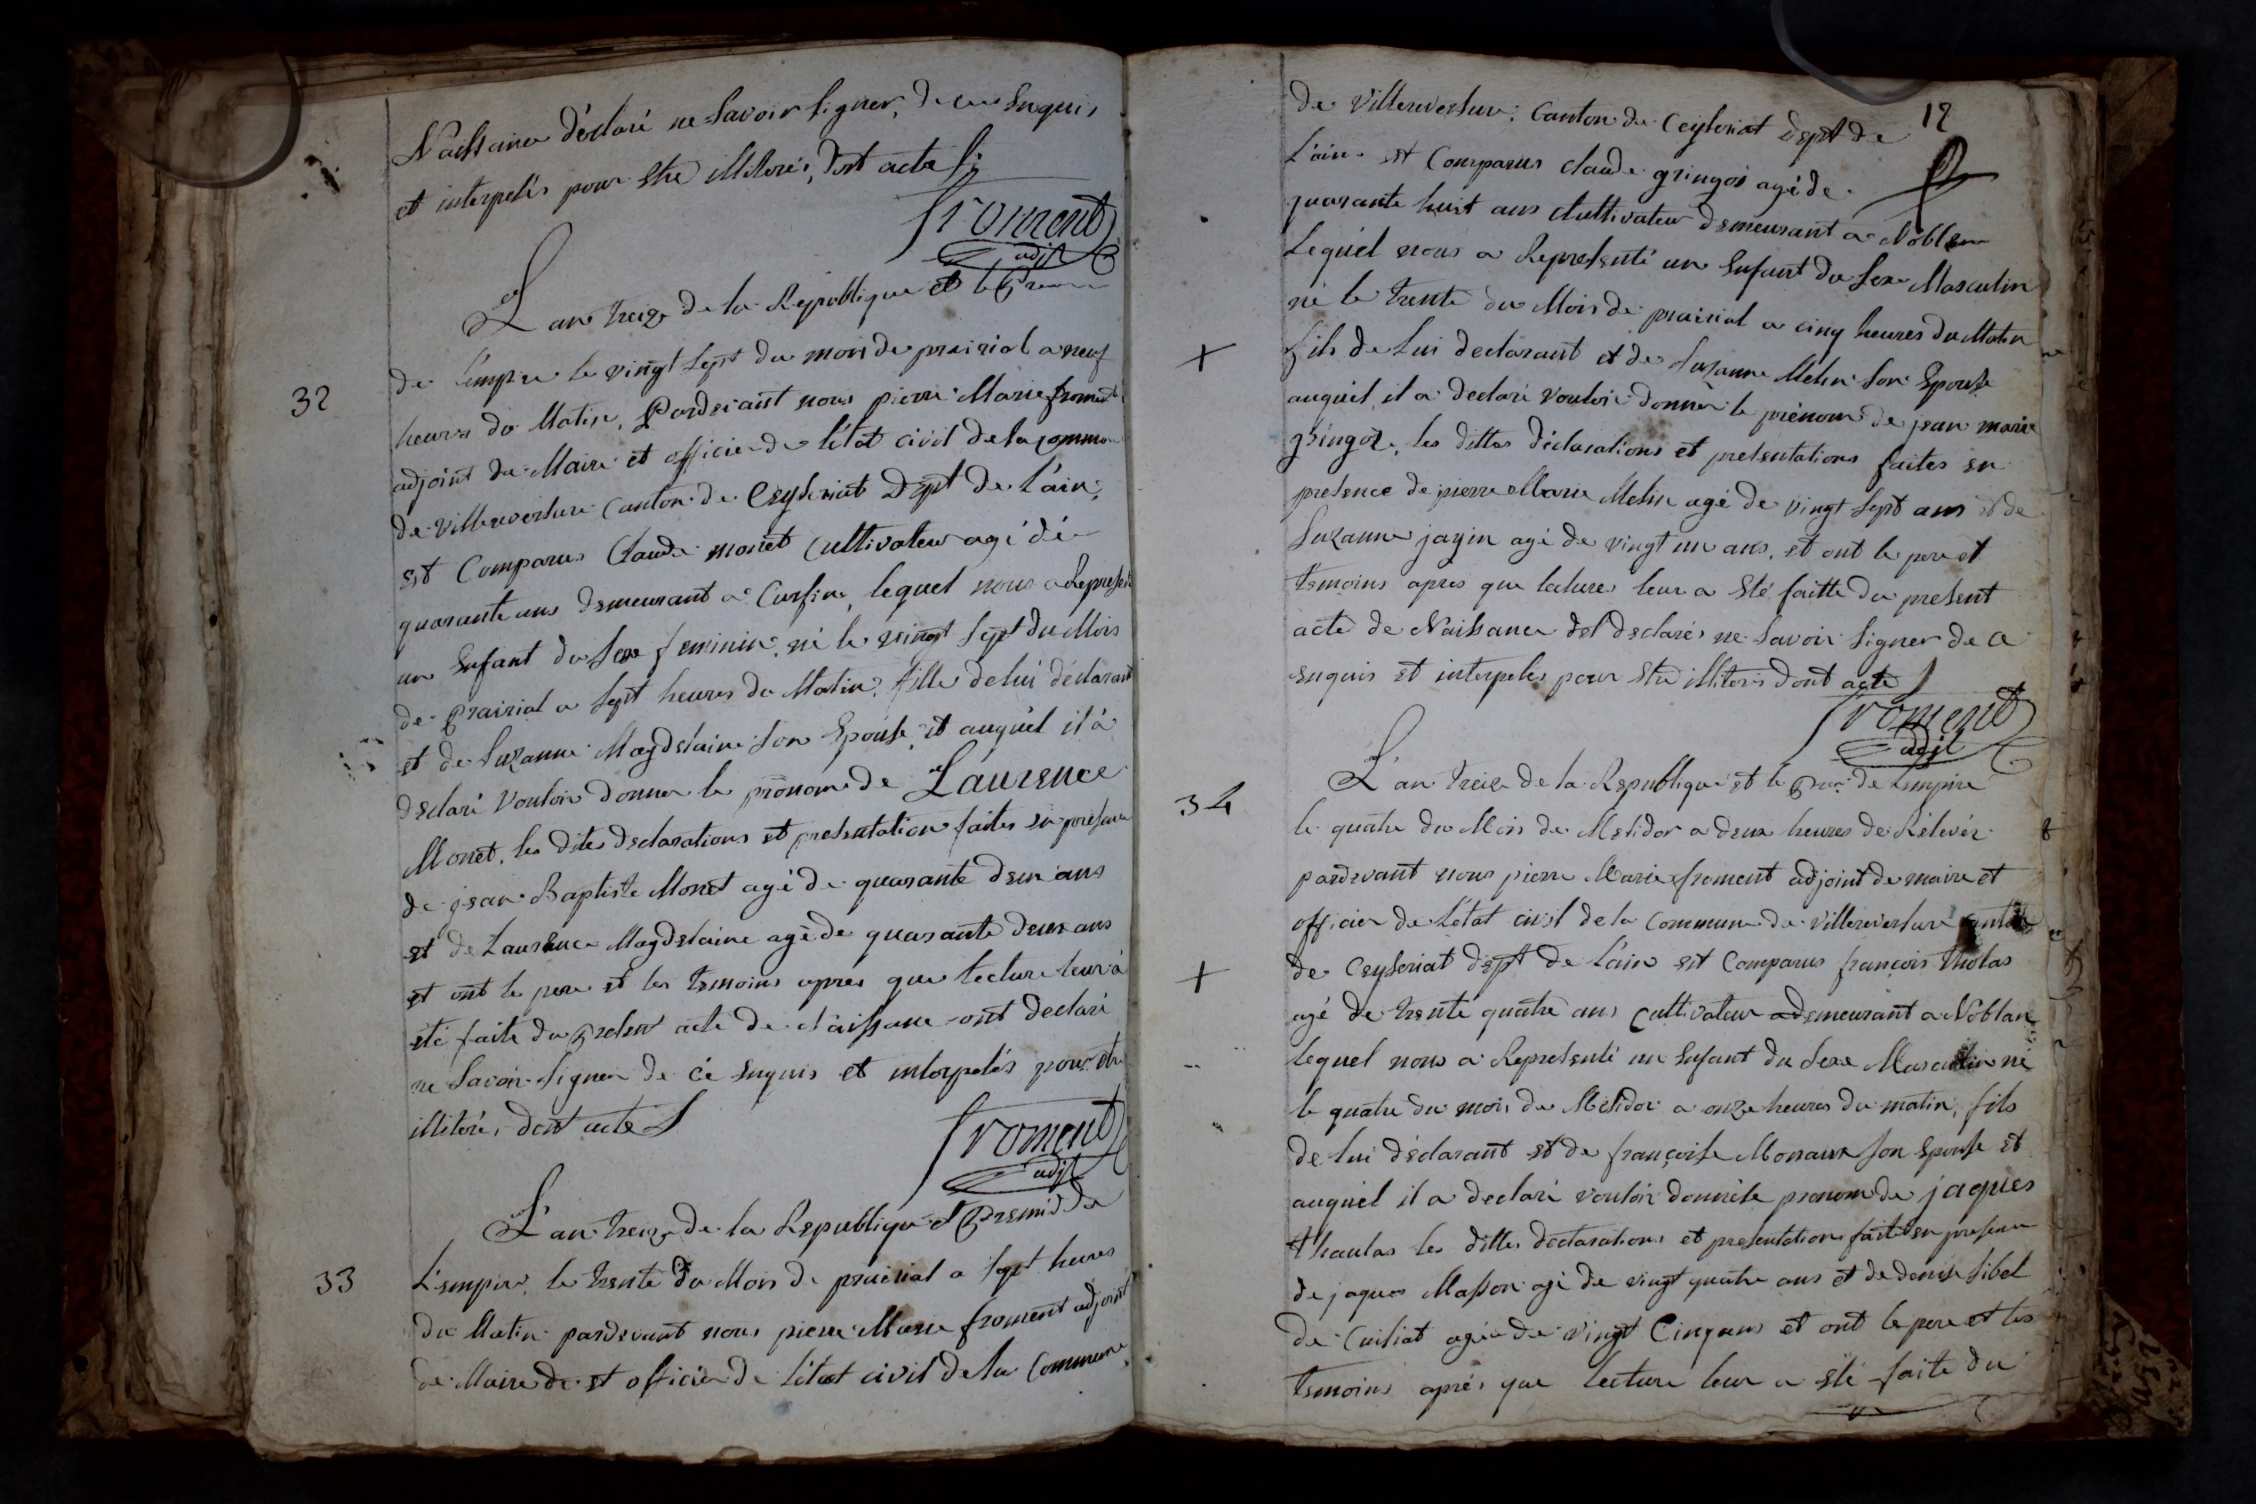 Naissance déclaré ne Savoir Signer, de ce Enquis
et interpelés pour être illiterés, Dont acte
froment
adjt
L'an treize de la Republique et le Premier
32
de l'empire le vingt Sept du mois de prairial a neuf
heures du Matin, Pardevant nous pierre Marie froment
adjoint du Maire et officier de l'état civil de la commune
de villereversure Canton de Ceyseriat Dept de L'ain,
est Comparus Claude monet Cultivateur agé dé
quarante ans demeurant a lequel nous a Represente
un Enfant du Sexe feminin, né le vingt Sept du Mois
de Prairial a Sept heures du Matin, fille de lui déclarant
et de Suzanne Magdelaine Son Epouse, et auquél il à
declaré Vouloir donner le prénom de Laurence
Monet, les dites declarations et presentation faites en presence
de jean Baptiste Monet agé de quarante deux ans
et de Laurence Magdelaine agè de quarante deux ans
et ont le pere et les temoins apres que lecture leur à
été faite du present acte de Naissance ont declaré
ne Savoir Signer de cé Enquis et interpelés pour etre
illiteré, dont acte
froment
adjt
L'an treize de la Republique et Premier de
33
L'empire, le trente du Mois de prairial a Sept heures
du Matin pardevant nous pierre Marie froment adjoint
de Maire de et officier de l'état civil de la Commune
12
de Villereversure, Canton de Ceyseriat Dept de
L'ain est Comparus claude gringoz agé de
quarante huit ans Cultivateur demeurant a Noblan
Lequél nous a Representé un Enfant du Sexe Masculin
né le trente du Mois de prairial a cinq heures du Matin
fils de Lui declarant et de Suzanne Melin Son Epouse
auquél il a declaré vouloir donnér le prénom de jean marie
gringoz, les dittes déclarations et presentations faites en
presence de pierre Marie Melin agé de vingt Sept ans et de
Suzanne jayin agé de vingt un ans, et ont le pere et
temoins apres que lecture leur a Eté faitte du present
acte de Naissance declarés ne Savoir Signer de ce
enquis et interpelés pour etre illiterés dont acte
froment
adjt
34
L'an treize de la Republique et le Pier de L'empire
le quatre du Mois de Messidor a deux heures de Rélevér
pardevant nous pierre Marie froment adjoint de maire et
officier de L'état civil de la Commune de villereversure canton
de Ceyseriat dept de l'ain est Comparus françois tholas
agé de trente quatre ans Cultivateur demeurant a Noblan
lequel nous a Representé un Enfant du Sexe Masculin né
le quatre du mois de Messidor a onze heures du matin, fils
de lui déclarant et de françoise Monaux Son epouse et
auquél il a declaré vouloir donnér le prenom de jaques
thaulas les dittes declarations et presentations faites en presence
de jaques Masson agé de vingt quatre ans et de denise Sibel
de Cuiliat agée de vingt Cinq ans et ont le pere et les
temoins aprés que lecture leur a été faite du